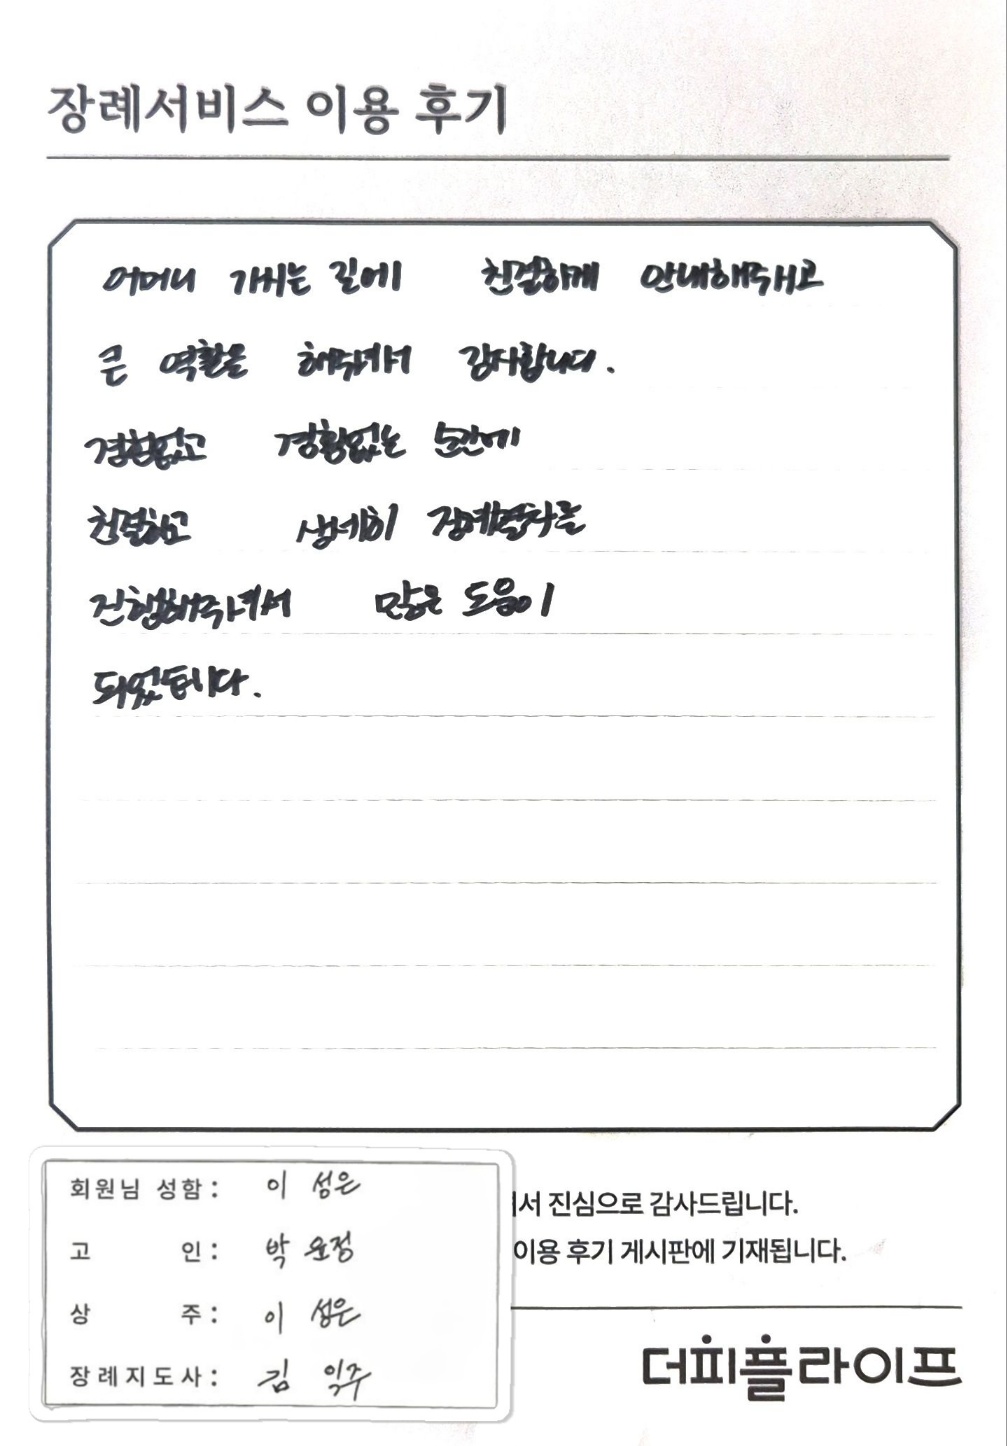 장례서비스 이용 후기
어머니 가시는 길에 친절하게 안내해주시고
큰 역활을 해주셔서 감사합니다.
경험없고 경황없는 순간에
친절하고 상세히 장례절차를
진행해주셔서 많은 도움이
되었습니다.
회원님 성함: 이 성은
고 인: 박 윤정
상 주: 이 성은
장례지도사: 김 익주
서 진심으로 감사드립니다.
이용 후기 게시판에 기재됩니다.
더피플라이프